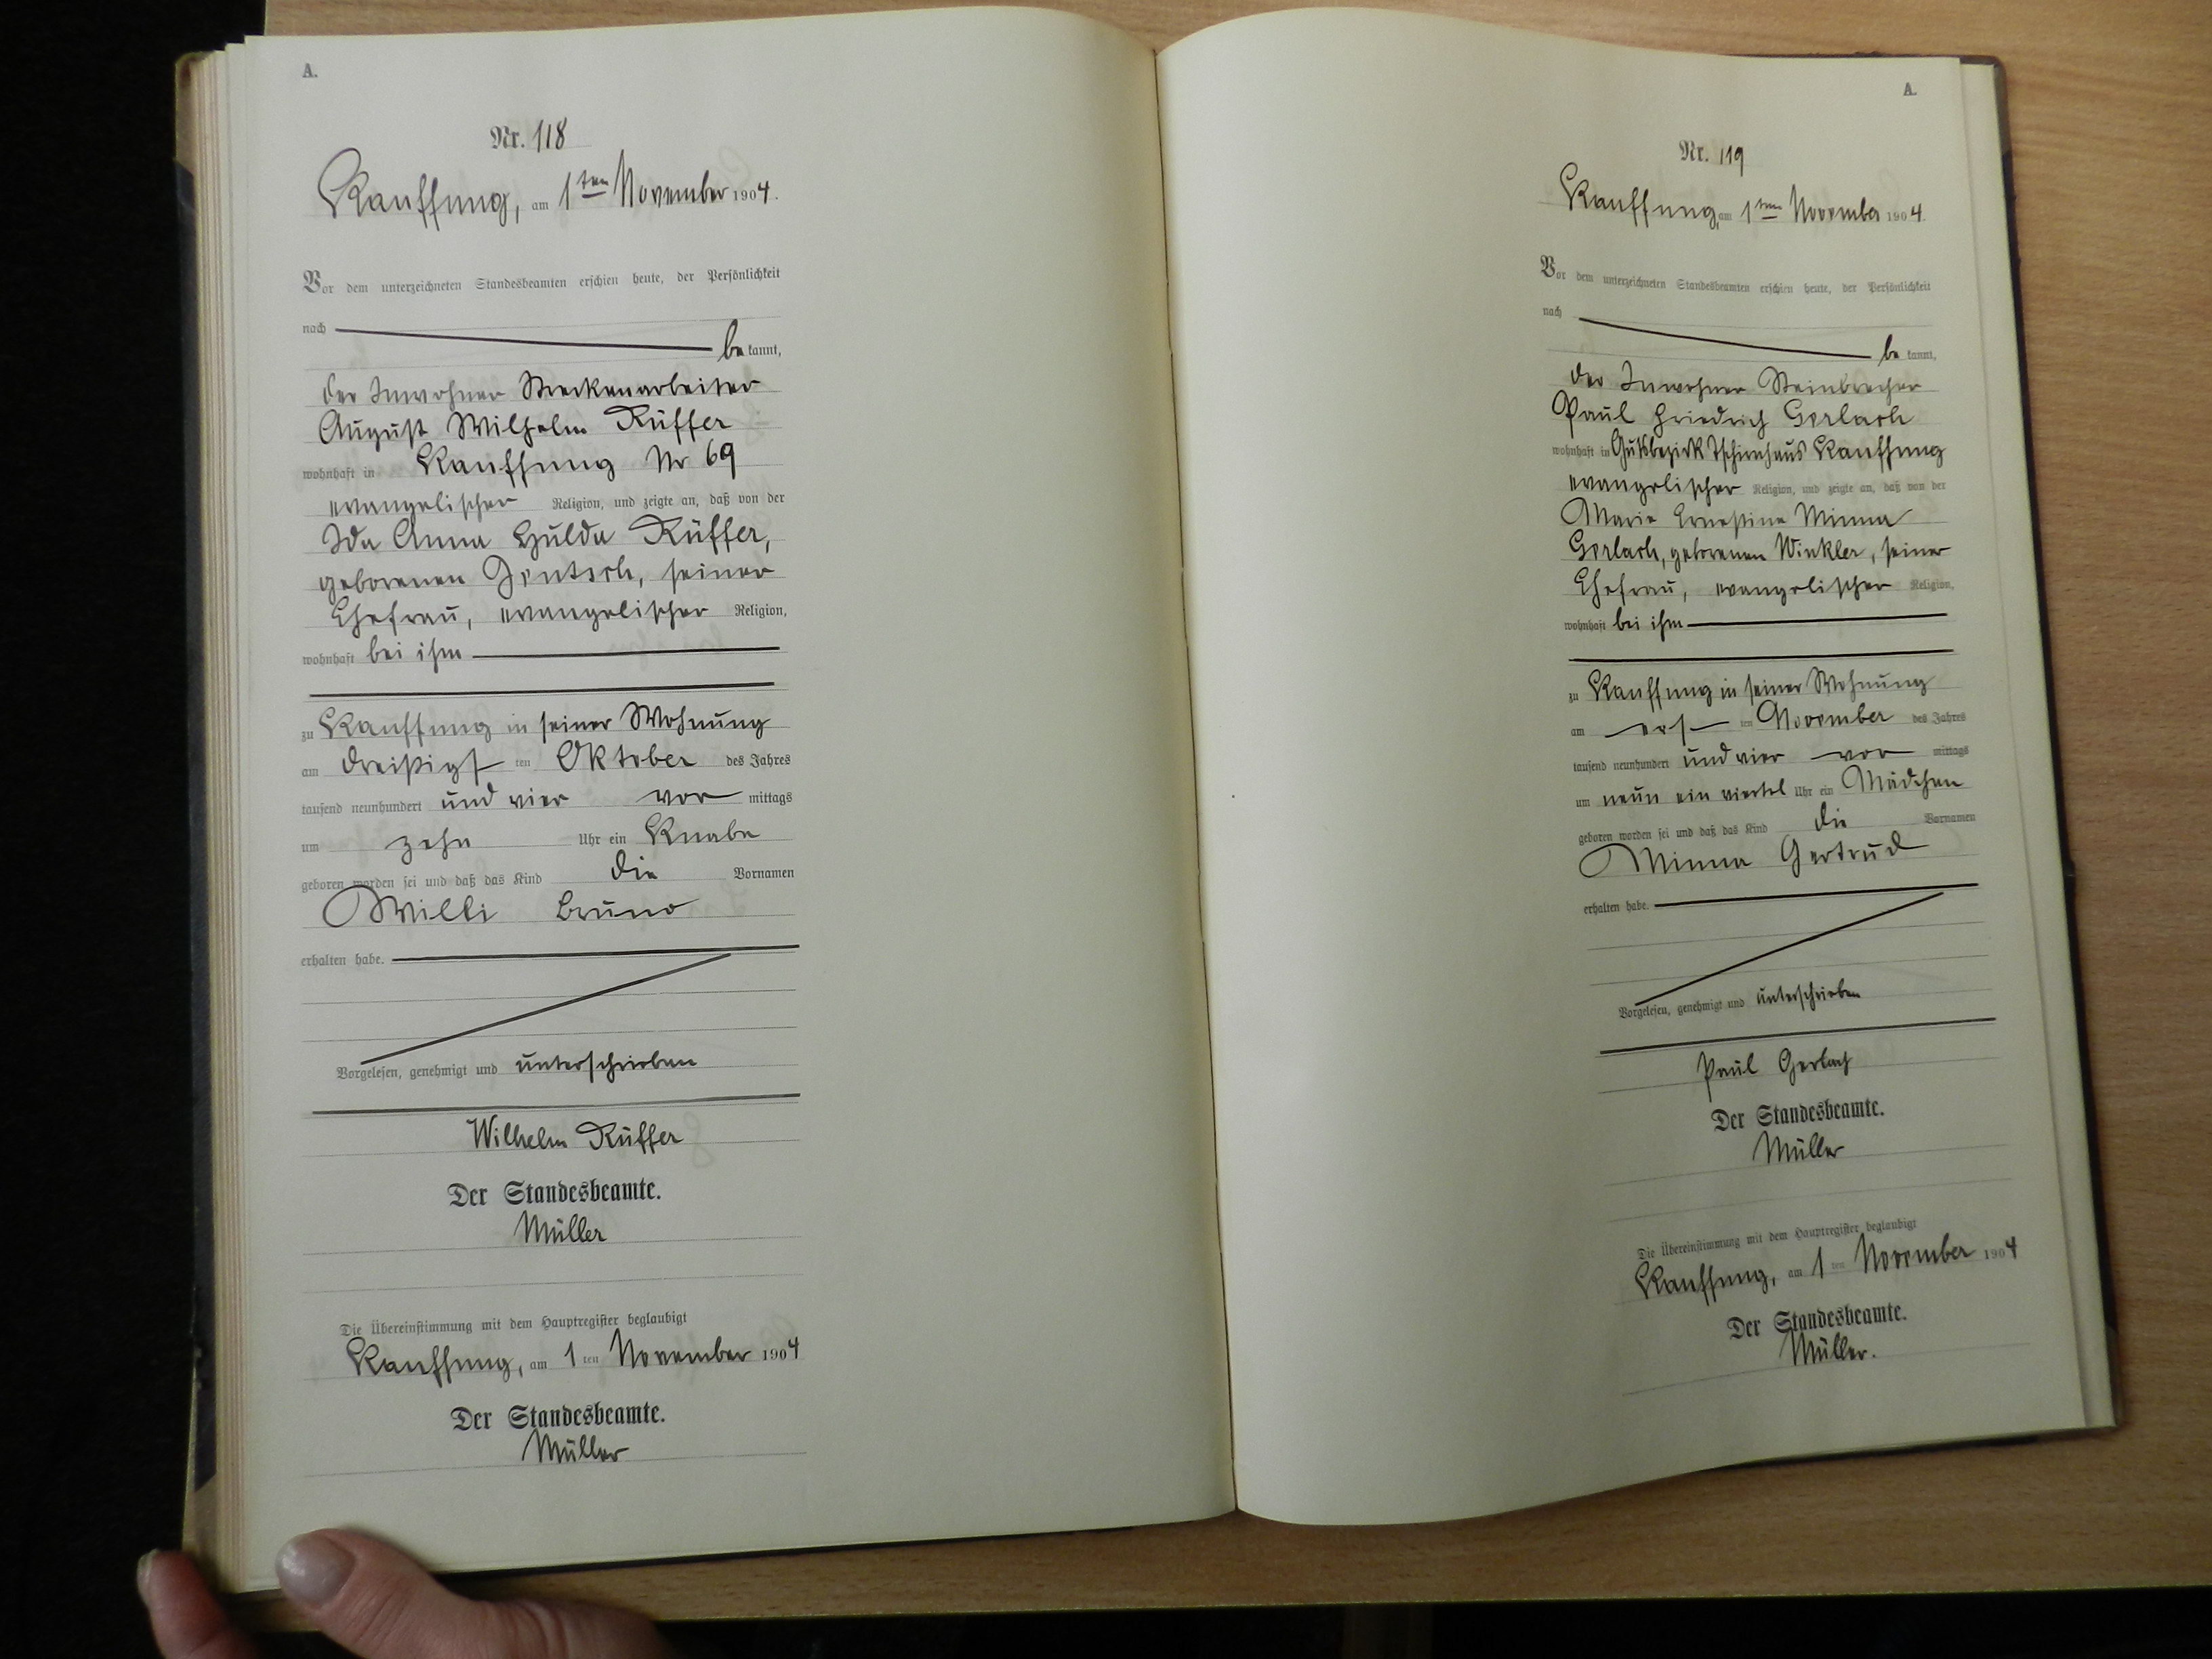 A.
Nr. 118
Kauffung, am 1ten November 1904.
Vor dem unterzeichneten Standesbeamten erschien heute, der Persönlichkeit
nach
be kannt,
der Inwohner Streckenarbeiter
August Wilhelm Rüffer
wohnhaft in Kauffung Nr 69
evangelischer Religion, und zeigte an, daß von der
Ida Anna Hulda Rüffer,
geborenen Jentsch, seiner
Ehefrau, evangelischer Religion,
wohnhaft bei ihm
zu Kauffung in seiner Wohnung
am dreißigs ten Oktober des Jahres
tausend neunhundert und vier vor mittags
um zehn Uhr ein Knabe
geboren worden sei und daß das Kind die Vornamen
Willi Bruno
erhalten habe.
Vorgelesen, genehmigt und unterschrieben
Wilhelm Rüffer
Der Standesbeamte.
Müller
Die Übereinstimmung mit dem Hauptregister beglaubigt
Kauffung, am 1 ten November 1904
Der Standesbeamte.
Müller
A.
Nr. 119
Kauffung, am 1ten November 1904.
Vor dem unterzeichneten Standesbeamten erschien heute, der Persönlichkeit
nach
be kannt,
der Inwohner Steinbrecher
Paul Friedrich Gerlach
wohnhaft in Gutsbezirk Tschirnhaus Kauffung
evangelischer Religion, und zeigte an, daß von der
Marie Ernestine Minna
Gerlach, geborenen Winkler, seiner
Ehefrau, evangelischer Religion,
wohnhaft bei ihm
zu Kauffung in seiner Wohnung
am ers ten November des Jahres
tausend neunhundert und vier vor mittags
um neun ein viertel Uhr ein Mädchen
geboren worden sei und daß das Kind die Vornamen
Minna Gertrud
erhalten habe.
Vorgelesen, genehmigt und unterschrieben
Paul Gerlach
Der Standesbeamte.
Müller
Die Übereinstimmung mit dem Hauptregister beglaubigt
Kauffung, am 1 ten November 1904
Der Standesbeamte.
Müller.